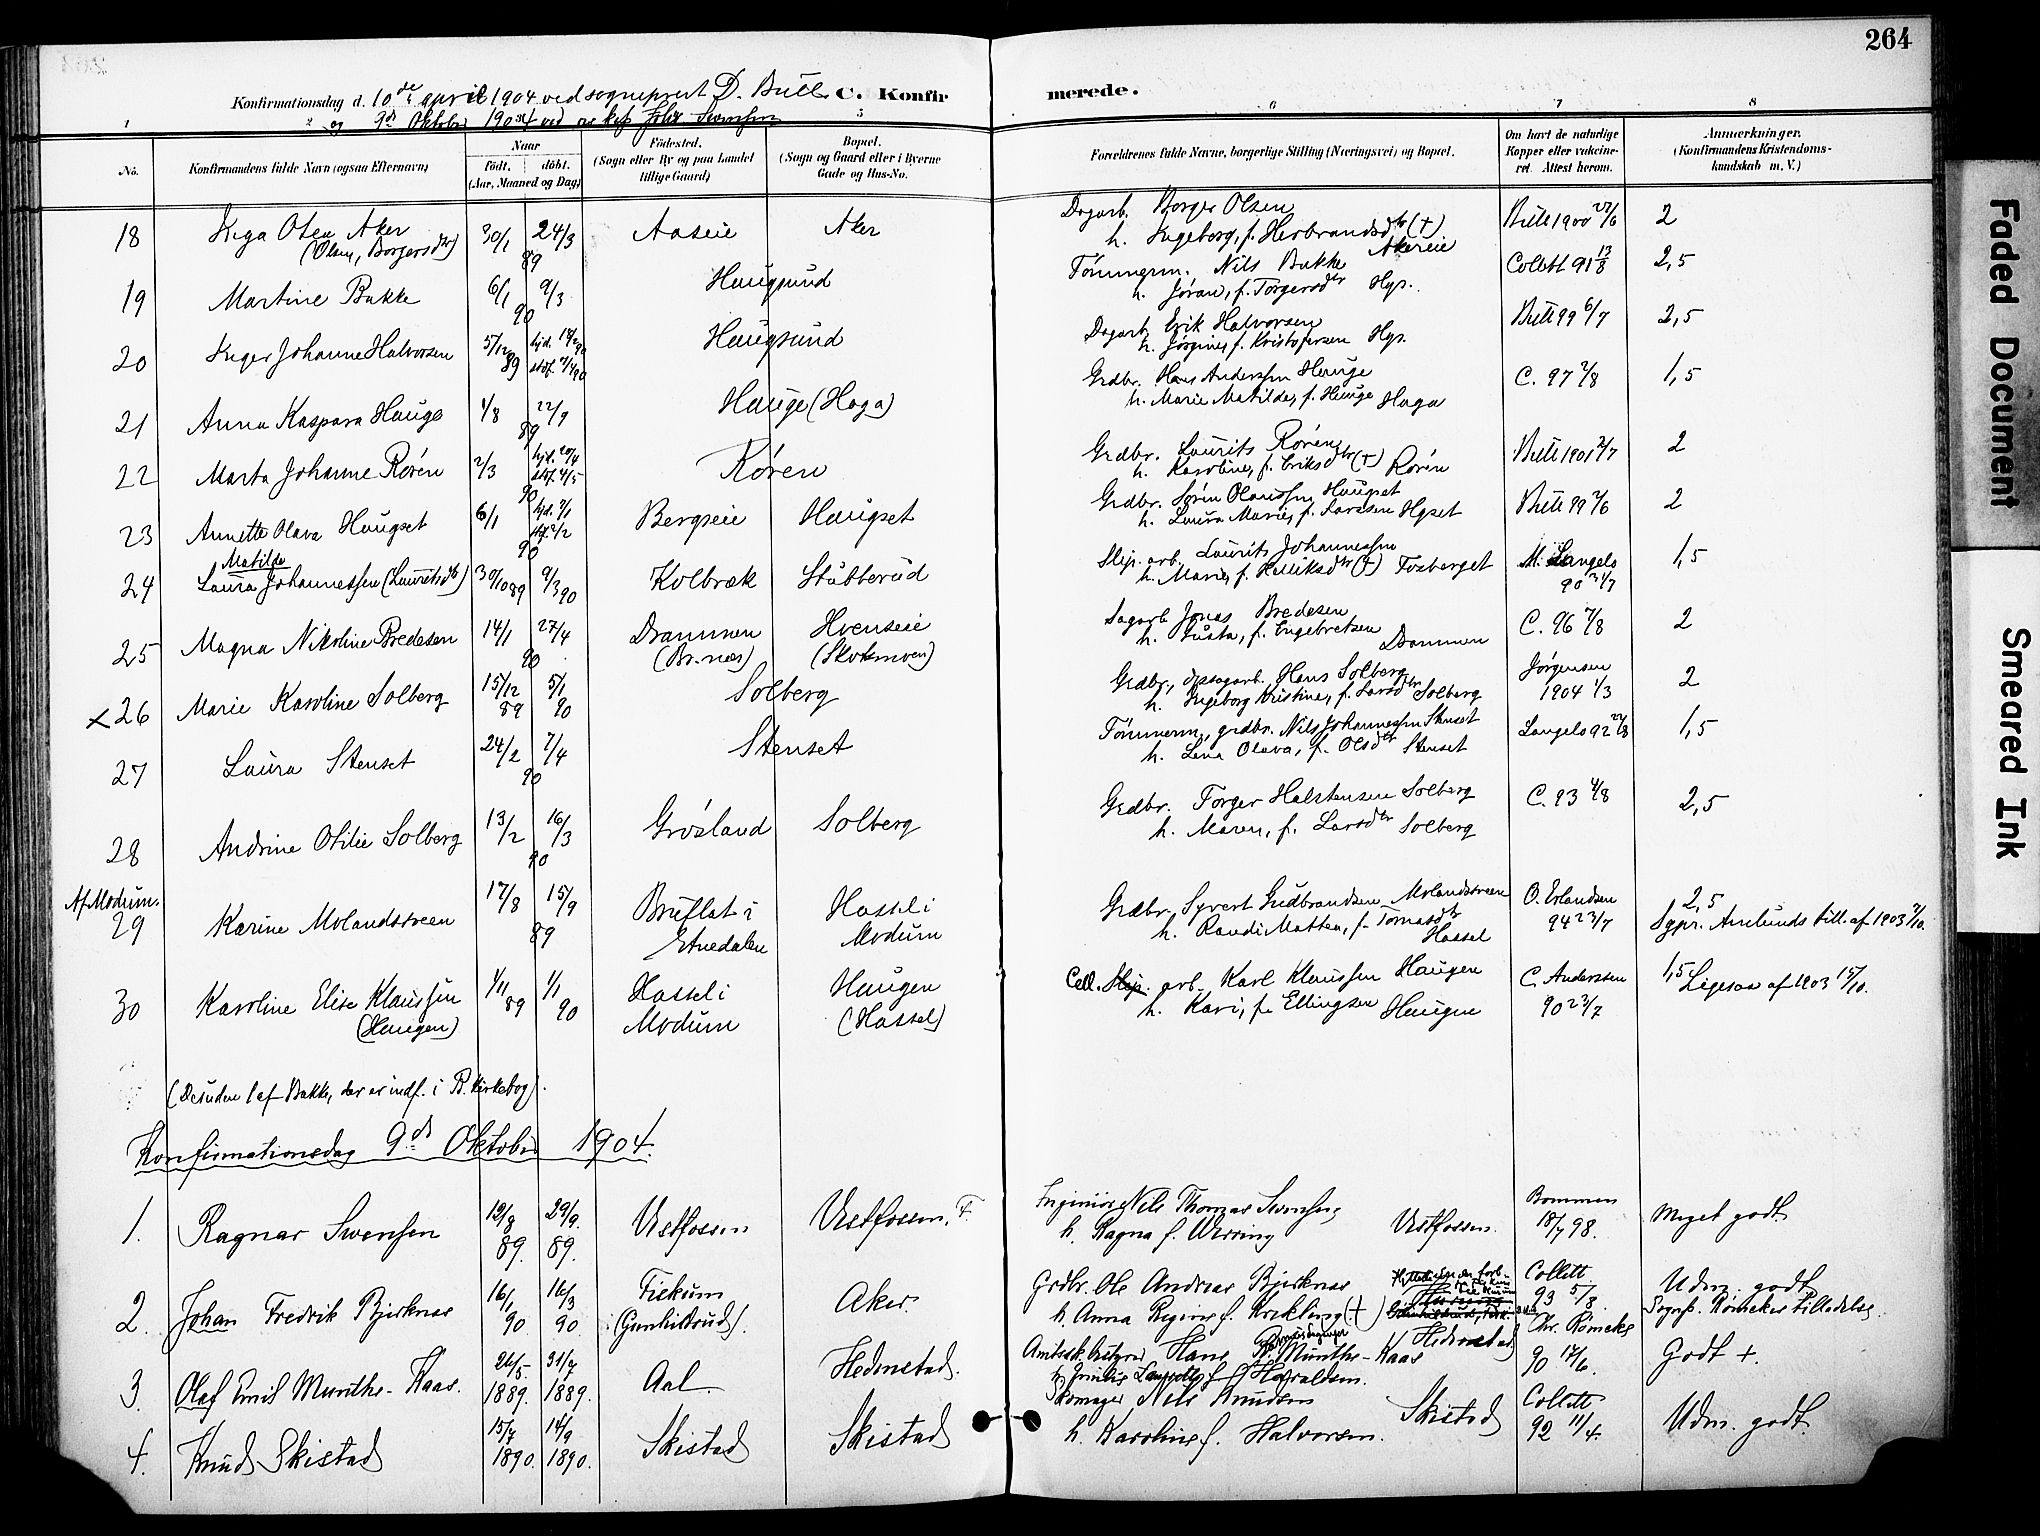 264
Konfirmationsdag d. 10de april 1904 ved sogneprest D. Bull C. Konfirmerede.
og 9de Oktober 1904 ved
1 2 5 6 7 8
No.
Konfirmandens fulde Navn (ogsaa Efternavn)
Naar
født. døbt.
(Aar, Maaned og Dag)
Fødested.
(Sogn eller By og paa Landet
tillige Gaard)
Bopæl.
(Sogn og Gaard eller i Byerne
Gade og Hus-No.
Forældrenes fulde Navne, borgerlige Stilling (Næringsvei) og Bopæl.
Om havt de naturlige
Kopper eller vaccine-
ret. Attest herom.
Anmerkninger.
(Konfirmandens Kristendoms-
kundskab m. V.)
18 Inga Olsen Aker 30/1 24/3 Aaseie Aker Dagarb. Borger Olsen Bull 1900 27/6 2
(Olsen, Borgersdtr) 89 h. Ingeborg, f. Herbrandsdtr (+) Akereie
19 Martine Bakke 6/1 9/3 Haugsund Tømmerm. Nils Bakke Collett 91 13/8 2,5
90 h. Jøran, f. Torgersdtr Hgs.
20 Inger Johanne Halvorsen 5/12 89 Haugsund Dagarb. Erik Halvorsen Bull 99 6/7 2,5
h. Jørgine, f. Kristofersen Hgs.
21 Anna Kaspara Hauge 1/8 22/9 Hauge (Haga) Grdbr. Hans Anderssen Hauge C. 97 2/8 1,5
89 h. Marie Matilde, f. Hauge Haga
22 Marta Johanne Røren 2/3 hjd. 20/4 Røren Grdbr. Laurits Røren Bull 1901 2/7 2
90 stdf. 4/5 h. Karoline, f. Eriksdtr (+) Røren
23 Annette Olava Haugset 6/1 Bergseie Haugset Grdbr. Søren Olaussen Haugset Bull 99 2/6 2
90 h. Laura Marie, f. Larssen Hgset
Matilde
24 Laura Johannessen (Lauritsdtr) 30/10 89 9/3 90 Kolbræk Stubberud Slip. arb. Laurits Johannessen M. Langels 1,5
h. Marie, f. (+) Fosberget
25 Magna Nikoline Bredesen 14/1 27/4 Drammen Hvenseie Sagarb. Jonas Bredesen C. 96 7/8 2
90 (Br.næs) (Skotsmoen) h. Gusta, f. Engebretsen Drammen
x 26 Marie Karoline Solberg 15/12 89 5/1 90 Solberg Grdbr., Hans Solberg Jørgensen 2
h. Ingeborg Kristine, f. Larsdtr Solberg 1904 1/3
27 Laura Stenset 24/2 7/4 Stenset Tømmerm., grdbr. Nils Johannessen Stenset Langels 92 22/8 1,5
90 h. Lena Olava, f. Olsdtr Stenset
28 Andrine Otilie Solberg 13/2 16/3 Grøsland Solberg Grdbr. Torger Halstensen Solberg C. 93 4/8 2,5
90 h. Maren, f. Larsdtr Solberg
Af Modum.
29 Karine Molandsveen 17/8 15/9 Bruflat i Hassel i Grdbr. Syvert Gudbrandsen Molandsveen O. Erlandsen 2,5
89 Etnedalen Modum h. Randi Mattea, f. Tomasdtr Hassel 94 23/7 Sgpr. Amlunds till. af 1903 7/10.
30 Karoline Elise Klaussen 1/11 89 1/1 90 Hassel i Haugen Cell. Slip. arb. Karl Klaussen Haugen C. Anderssen 1,5
(Haugen) Modum (Hassel) h. Kari, f. Ellingsen Haugen 90 23/7 Ligesaa af 1903 15/10.
(Desuden 1 af Bakke, der er indf. i B. kirkebog).
Konfirmationsdag 9de Oktober 1904.
1. Ragnar Svensen 12/8 89. 29/9. 89. Vestfossen Vestfossen. F. Ingeniør Nils Thomas Svensen Bommen Meget godt
h. Ragna f. Wirring Vestfossen. 18/7 98.
2. Johan Fredrik Bjerknæs 16/1 90 16/3 90 Fiskum Aker. Grdbr. Ole Andreas Bjerknæs Collett Udm. godt
(Gunhildrud). h. Anna Regine f. Krekling (+) 93 5/8. Sognp. Rømckes Tilladelse.
3. Olaf Emil Munthe-Kaas. 26/5. 1889. 31/7 1889. Aal. Hedenstad. Amtssk.bestyrer Hans Munthe-Kaas Hedenstad Chr. Rømcke Godt +.
90 17/6
4. Knud Skistad 15/7 1890. 14/9 1890. Skistad Skistad Skomager Nils Knudsen Skistad Collett Udm. godt.
h. Karoline f. Halvorsen. 92 11/4.
Faded Document
Smeared Ink